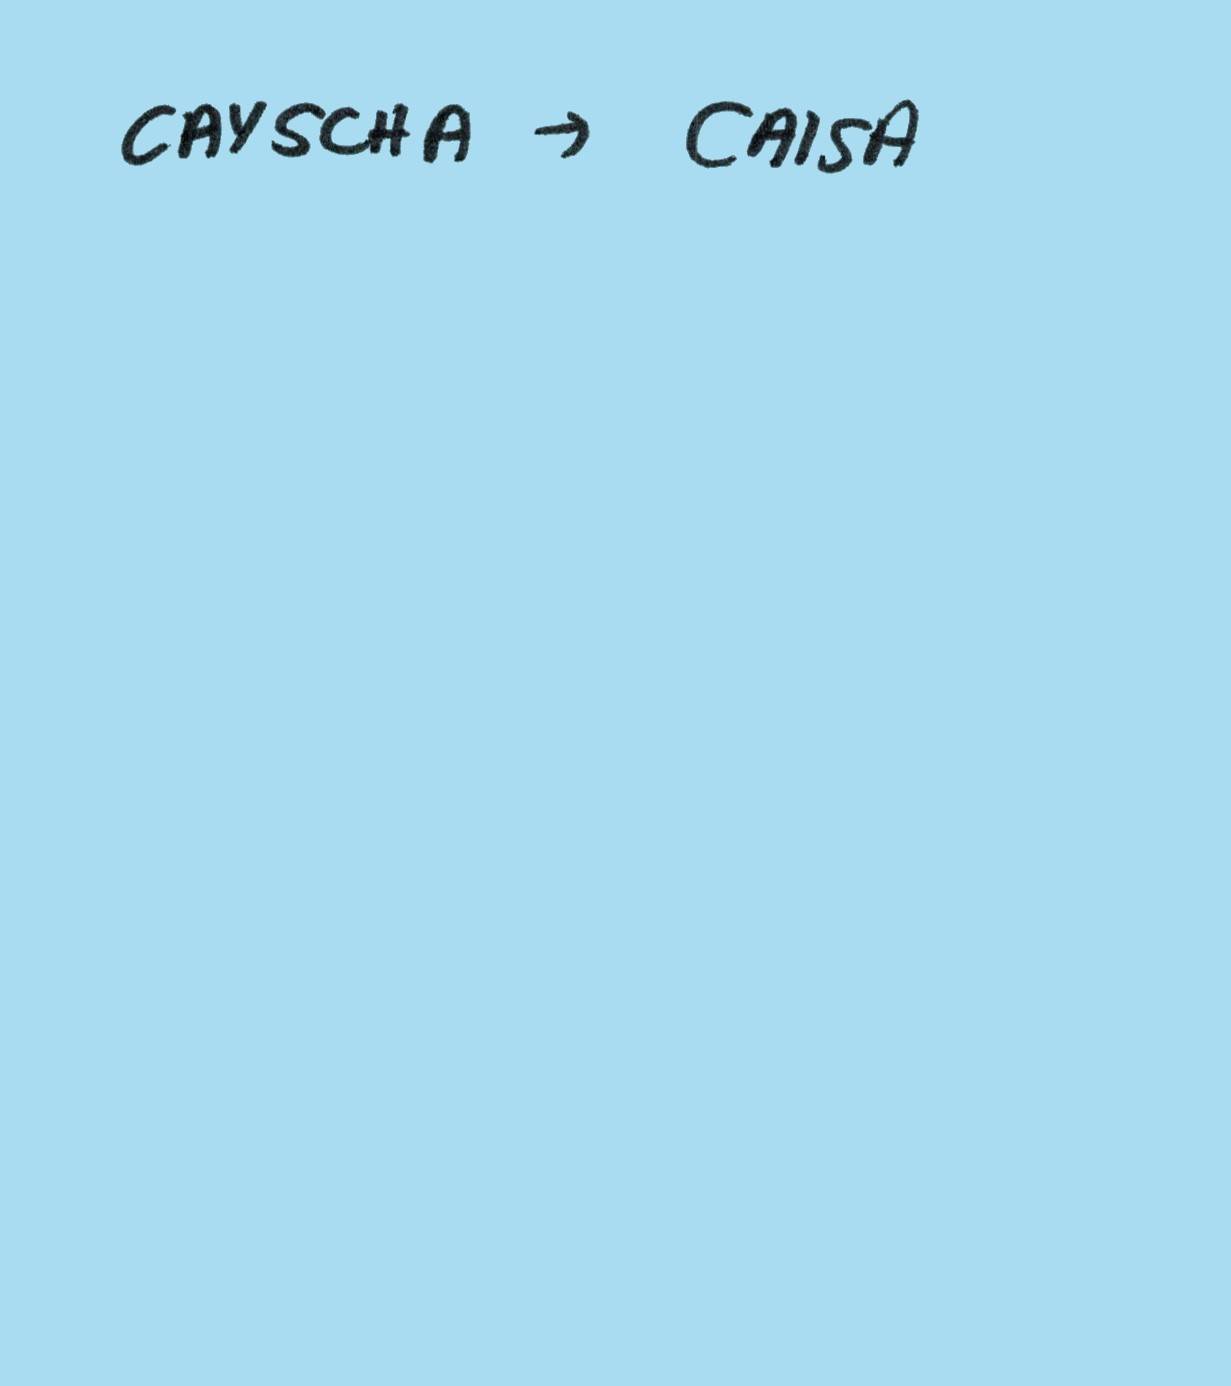 CAYSCHA → CAISA